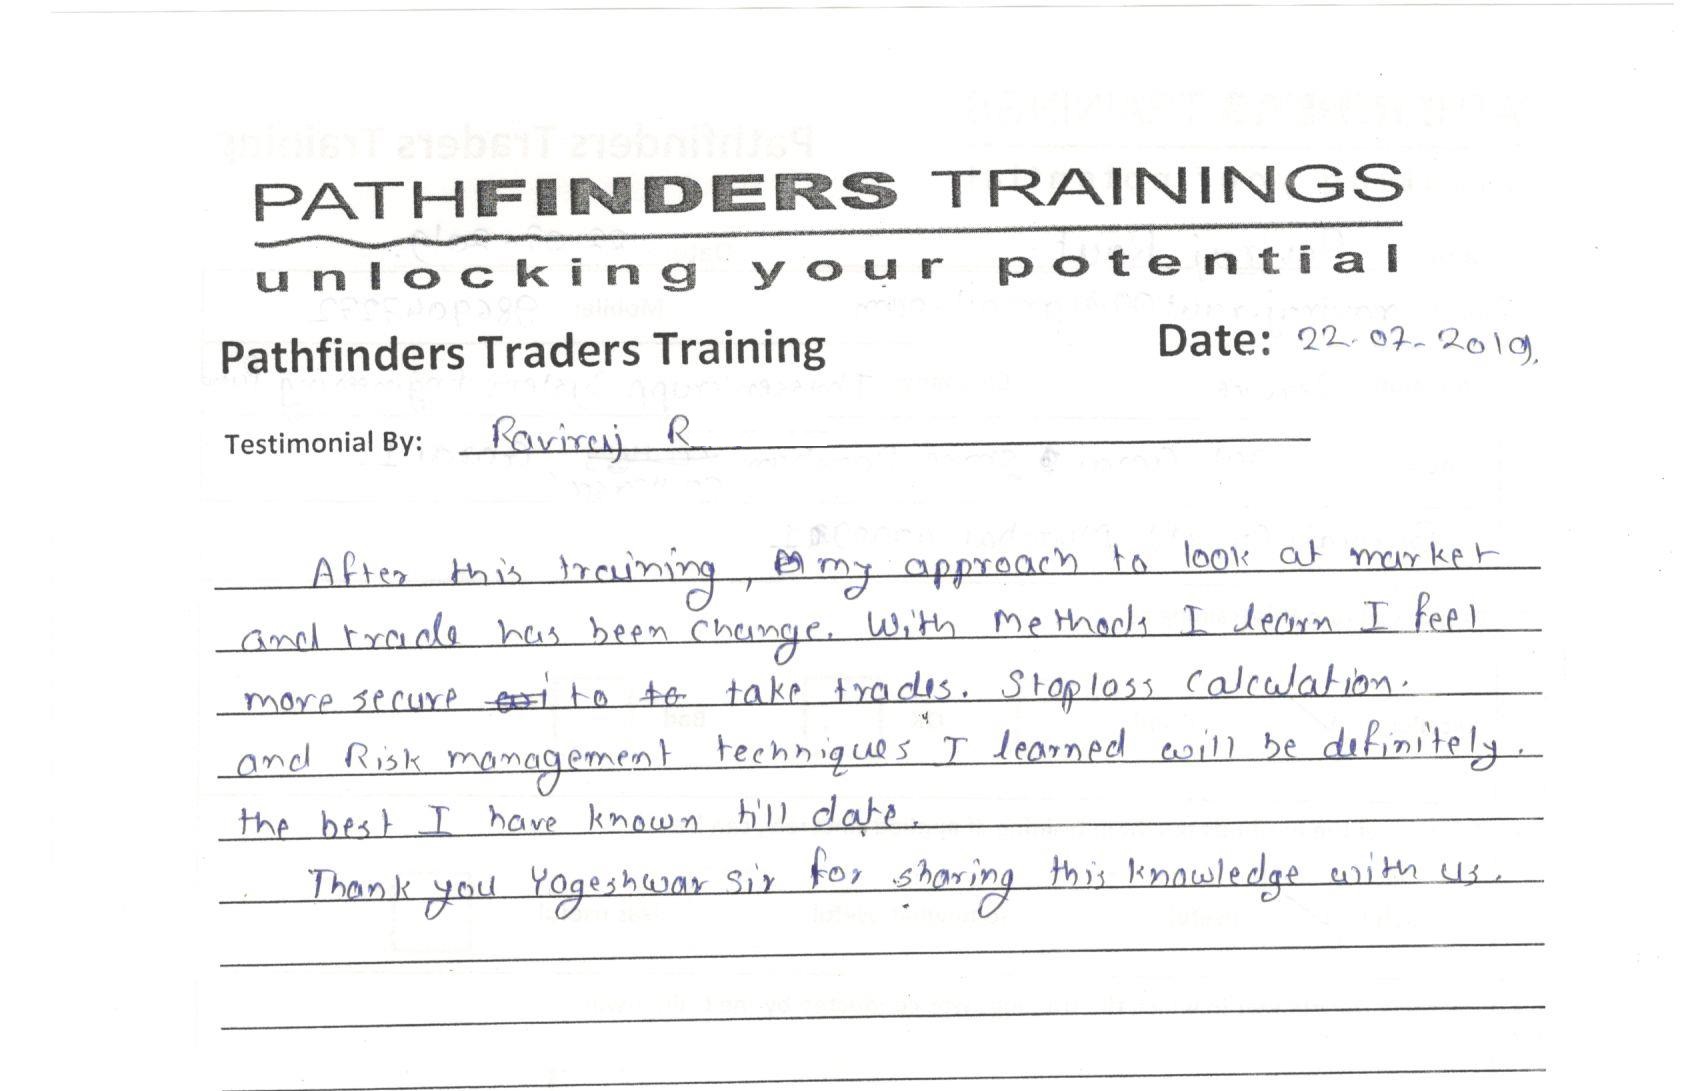 PATHFINDERS TRAININGS
unlocking your potential
Pathfinders Traders Training Date: 22-07-2019.
Testimonial By: Raviraj R
After this training, my approach to look at market
and trade has been change. With methods I learn I feel
more secure to to take trades. Stoploss Calculation.
and Risk management techniques I learned will be definitely.
the best I have known till date.
Thank you Yogeshwar Sir for sharing this knowledge with us.